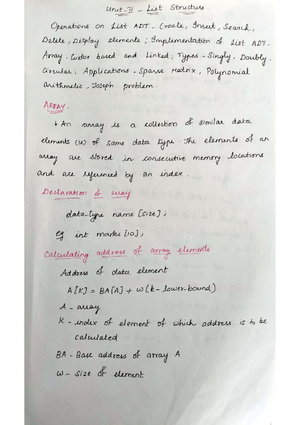 Unit-3 - List Structure.
Operations on List ADT - Create, Insert, Search,
Delete, Display elements; Implementation of List ADT -
Array, Cursor based and Linked; Types - Singly, Doubly,
Circular; Applications - Sparse Matrix, Polynomial
arithmetic, Joseph problem.
ARRAY:
An array is a collection of similar data
elements of same data type. The elements of an
array are stored in consecutive memory locations
and are referenced by an index.
Declaration of array
data-type name [size];
eg int marks [10];
Calculating address of array elements
Address of data element
A[K] = BA[A] + W(k - lower-bound)
A - array
K - index of element of which address is to be
calculated
BA - Base address of array A
W - size of element